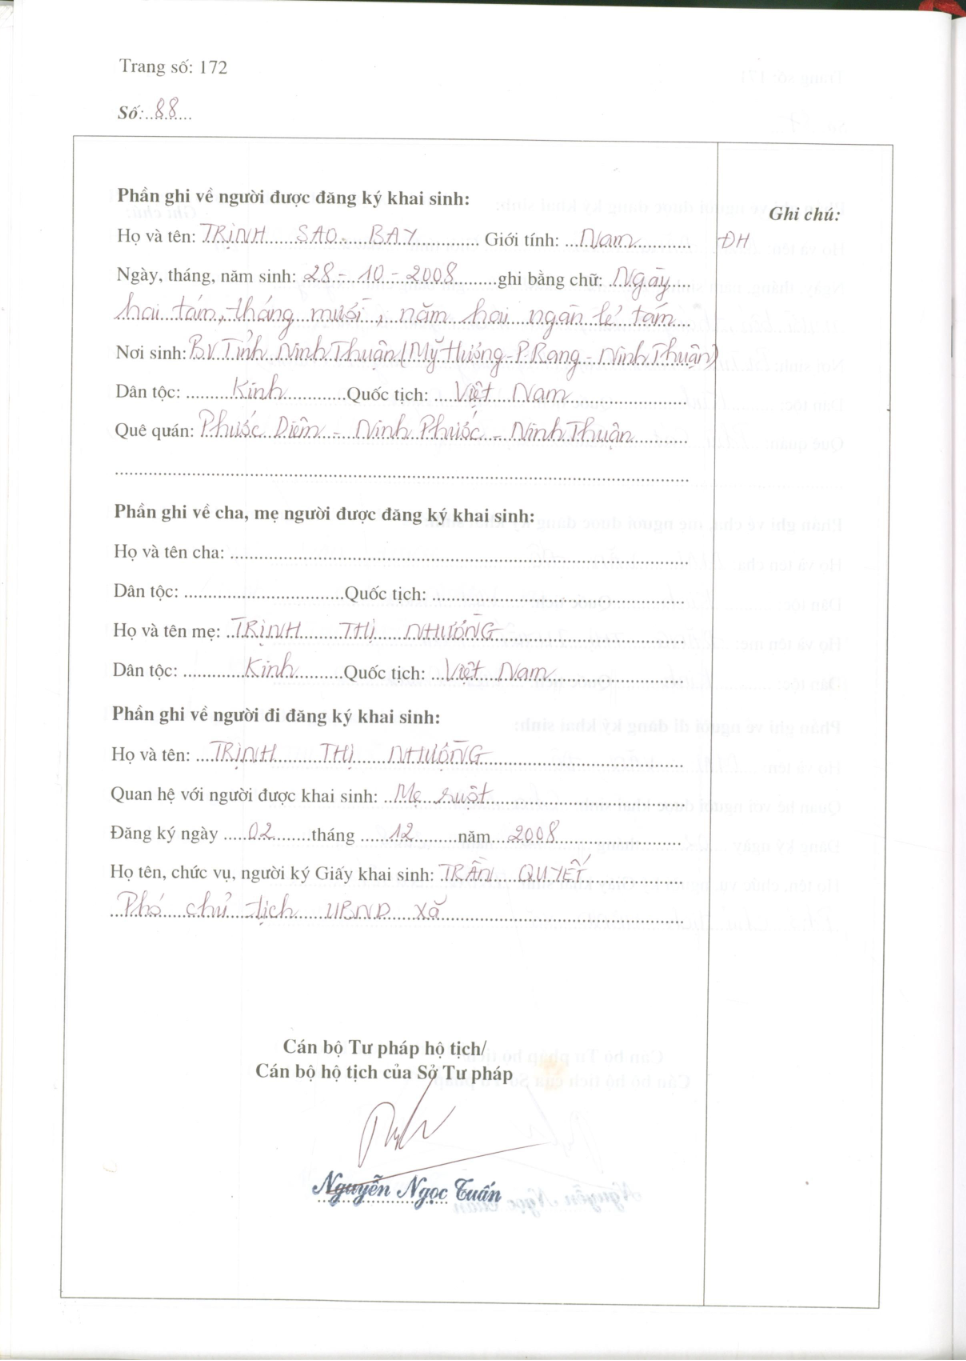 Trang số: 172
Số: 88
Phần ghi về người được đăng ký khai sinh:
Ghi chú:
Họ và tên: TRỊNH SAO BAY Giới tính: Nam
ĐH
Ngày, tháng, năm sinh: 28-10-2008 ghi bằng chữ: Ngày
hai tám, tháng mười, năm hai ngàn lẻ tám
Nơi sinh: BV Tỉnh Ninh Thuận (Mỹ Hương-P.Rang-Ninh Thuận)
Dân tộc: Kinh Quốc tịch: Việt Nam
Quê quán: Phước Diêm - Ninh Phước - Ninh Thuận
Phần ghi về cha, mẹ người được đăng ký khai sinh:
Họ và tên cha:
Dân tộc: Quốc tịch:
Họ và tên mẹ: TRỊNH THỊ NHƯỜNG
Dân tộc: Kinh Quốc tịch: Việt Nam
Phần ghi về người đi đăng ký khai sinh:
Họ và tên: TRỊNH THỊ NHƯỜNG
Quan hệ với người được khai sinh: Mẹ ruột
Đăng ký ngày 02 tháng 12 năm 2008
Họ tên, chức vụ, người ký Giấy khai sinh: TRẦN QUYẾT
Phó chủ tịch UBND xã
Cán bộ Tư pháp hộ tịch/
Cán bộ hộ tịch của Sở Tư pháp
Nguyễn Ngọc Tuấn